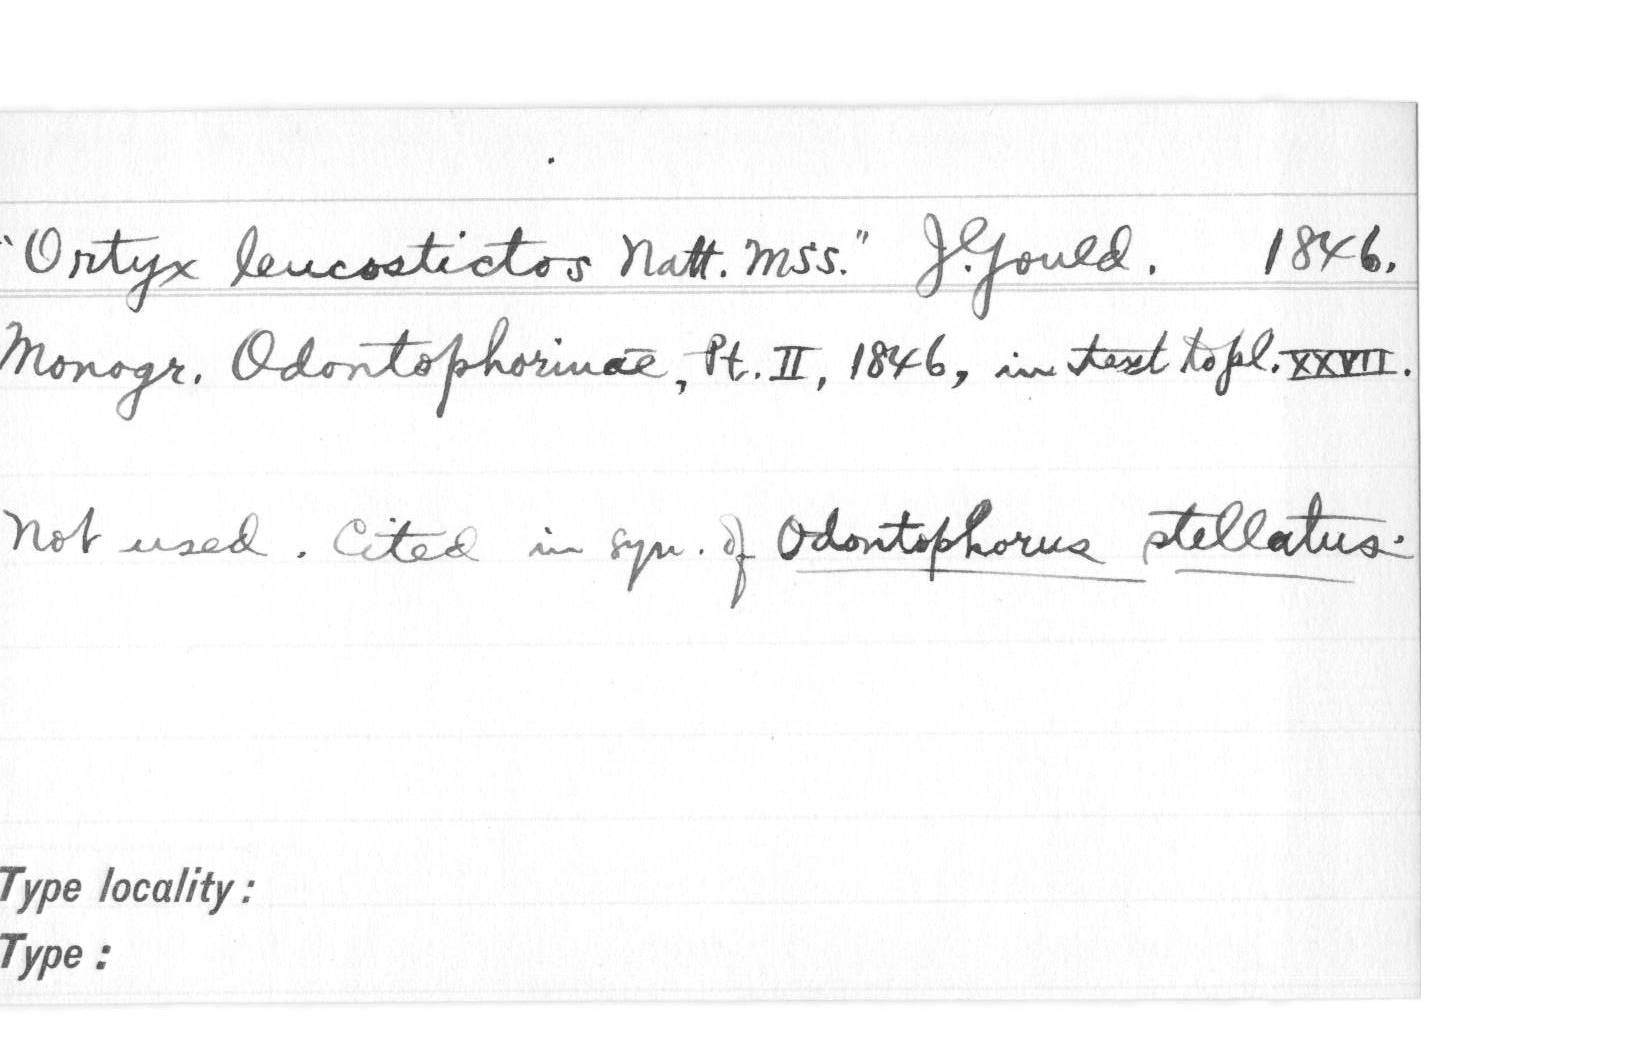 "Ortyx leucostictos Natt. Mss." J. Gould. 1846.
Monogr. Odontophorinae, Pt. II, 1846, in text to pl. XXVII.
Not used. Cited in syn. of Odontophorus stellatus.
Type locality:
Type: